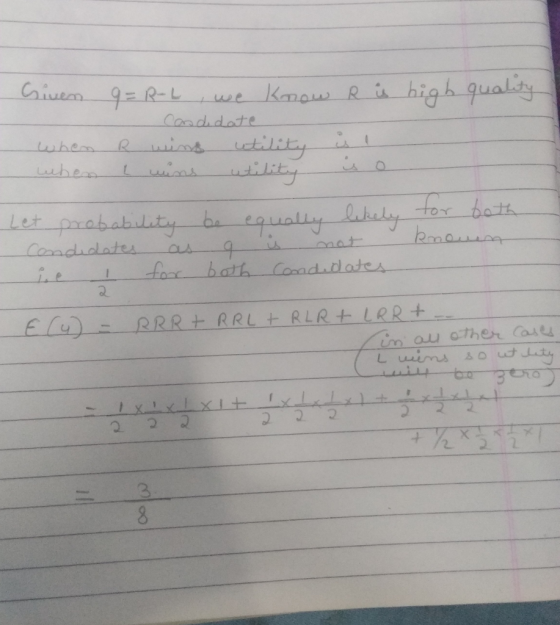 Given q = R-L, we know R is high quality
candidate
when R wins utility is 1
when L wins utility is 0
Let probability be equally likely for both
candidates as q is not known
i.e 1/2 for both candidates
E(u) = RRR + RRL + RLR + LRR + --
(in all other cases
L wins so utility
will be zero)
= 1/2 x 1/2 x 1/2 x 1 + 1/2 x 1/2 x 1/2 x 1 + 1/2 x 1/2 x 1/2 x 1
+ 1/2 x 1/2 x 1/2 x 1
= 3/8